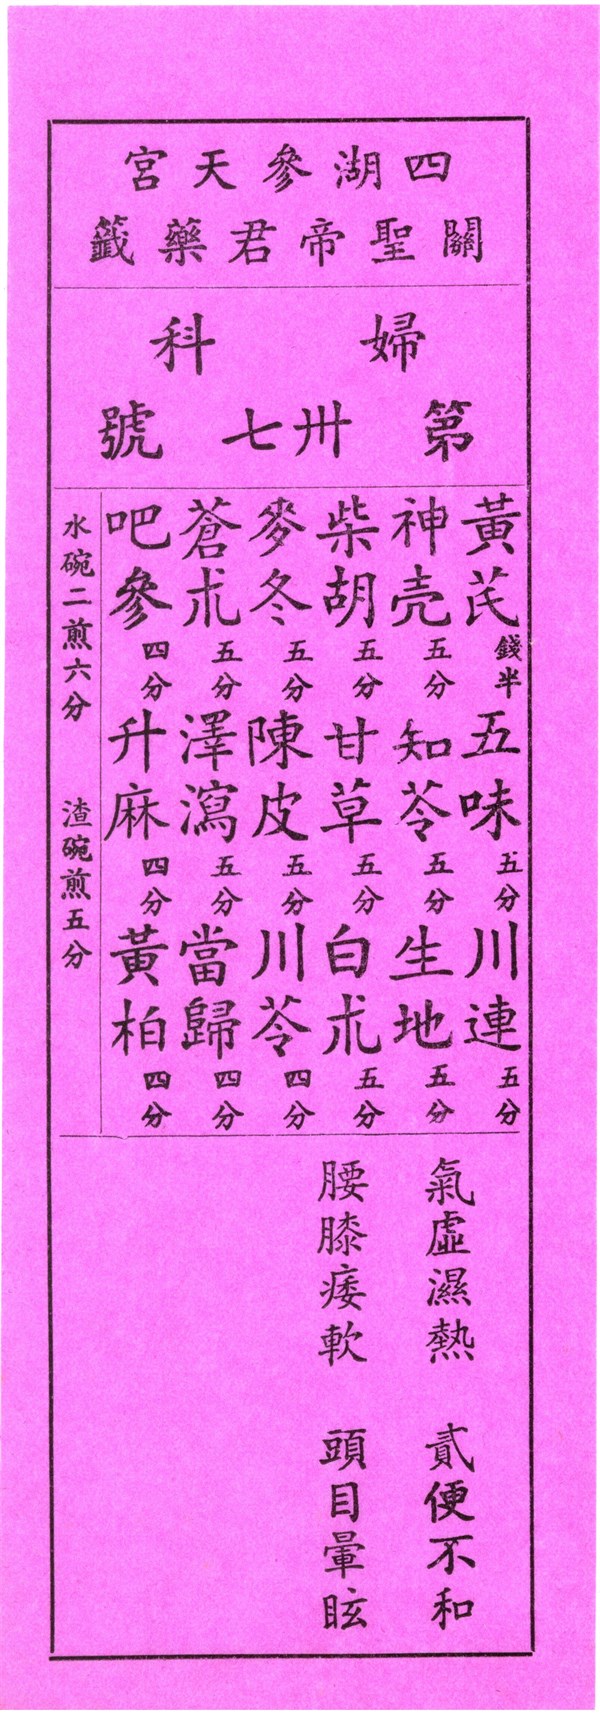 四湖參天宮
關聖帝君藥籤
婦科
第卅七號
黃芪錢半 五味五分 川連五分
神壳五分 知苓五分 生地五分
柴胡五分 甘草五分 白朮五分
麥冬五分 陳皮五分 川芩四分
蒼朮五分 澤瀉五分 當歸四分
吧參四分 升麻四分 黃柏四分
水碗二煎六分 渣碗煎五分
氣虛濕熱 貳便不和
腰膝痿軟 頭目暈眩